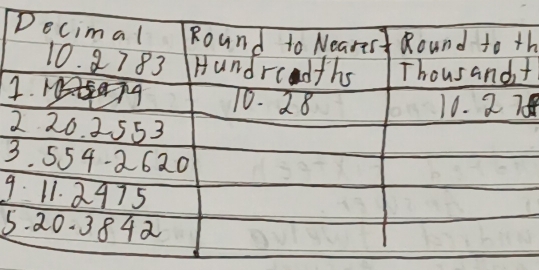 Decimal Round to Nearest Round to th
10.2783 Hundredths Thousandt
1. 10.28 10.278
2. 20.2553
3. 554.2620
4. 11.2475
5. 20.3842